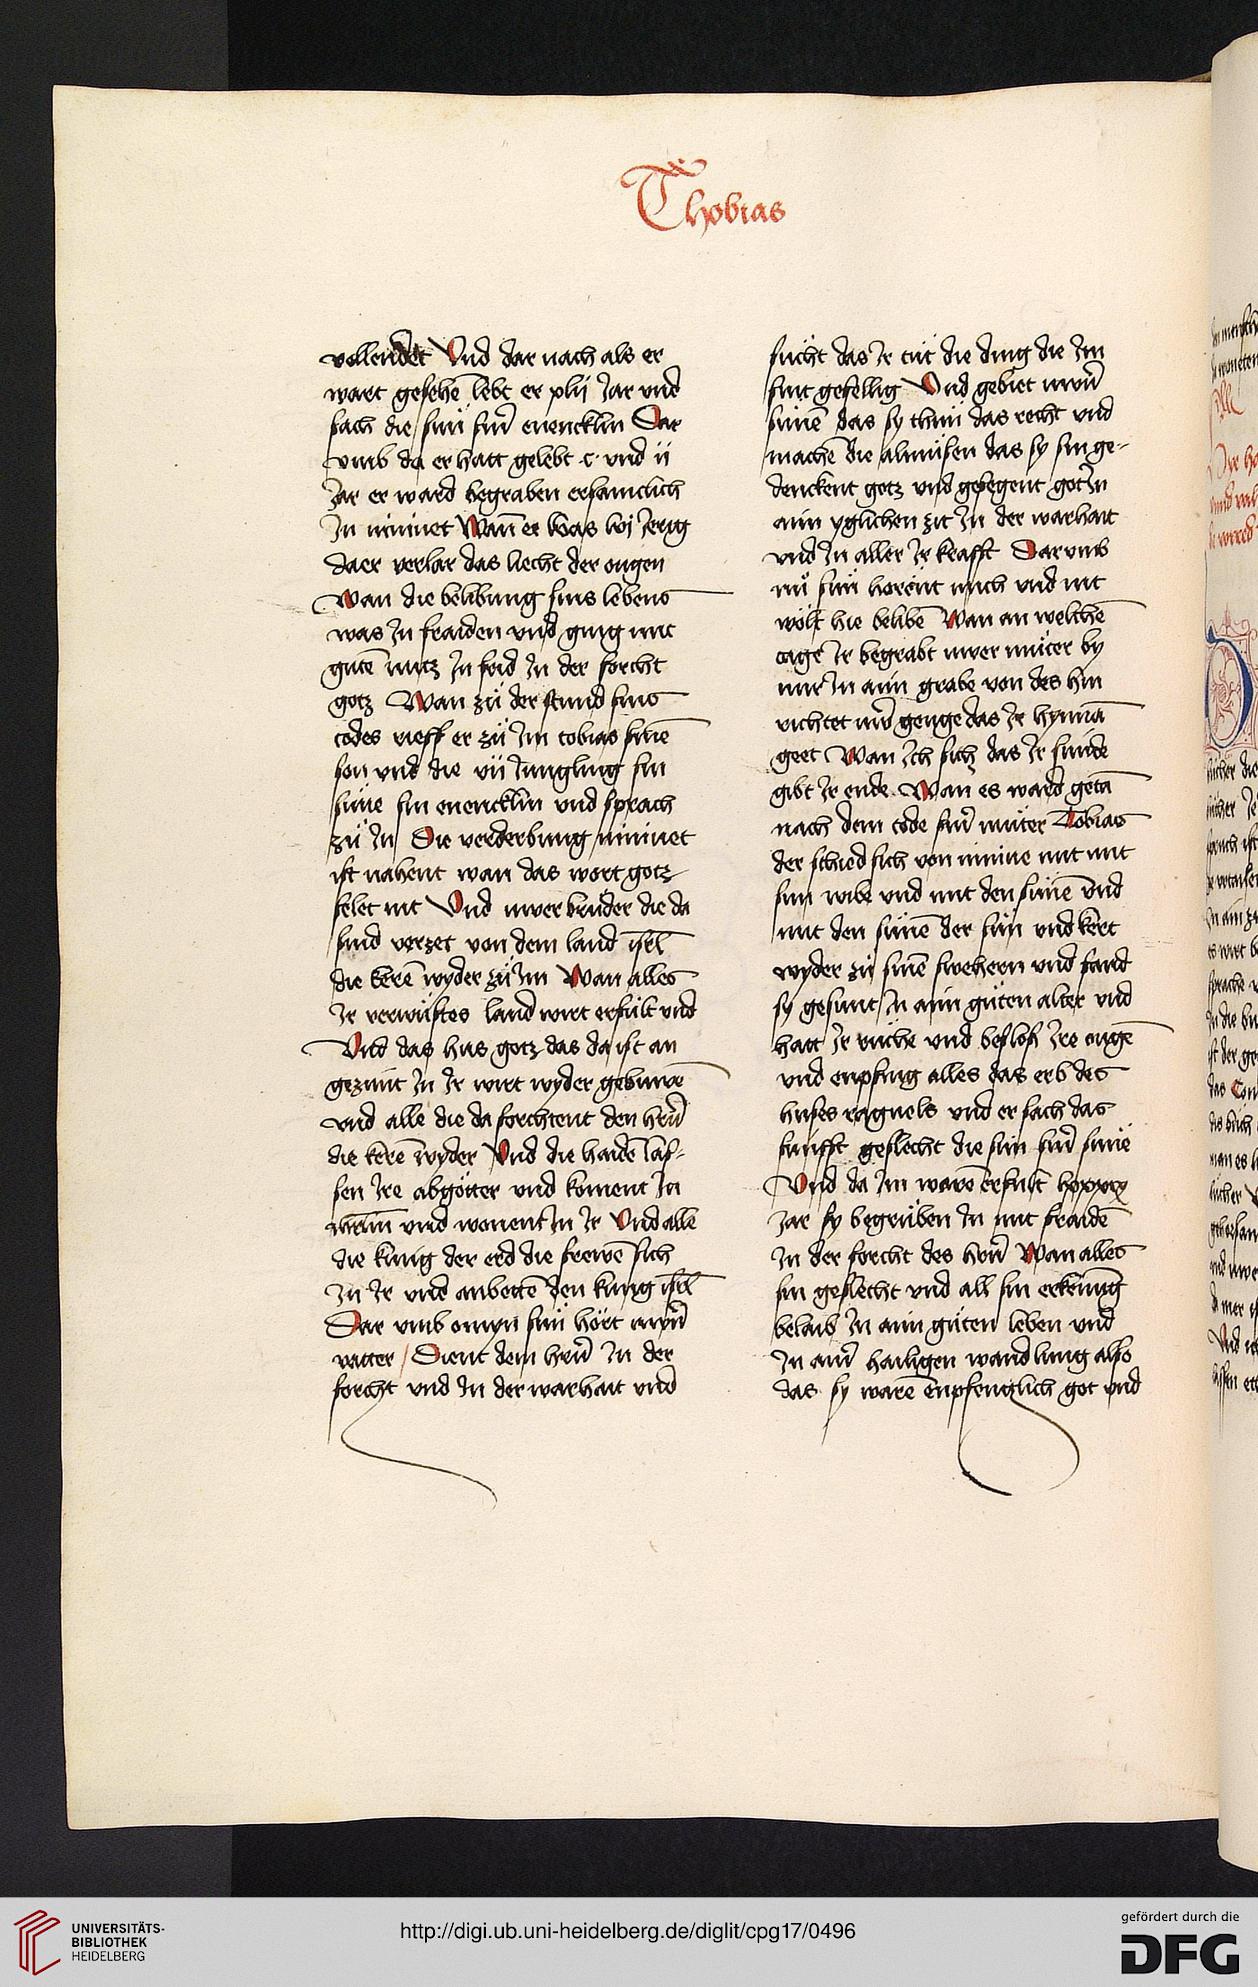 Thobias
vollendet Vnd dar nach als er
wart gesehē lebt er xlij Jar vnd
sach die sün sinr̄ enencklin Dar
vmb da er hatt gelebt ·c· vnd ii
Jar er ward begraben ersamclich
In niniuet Wan̄ er was lvj Jerig
da er verlor das liecht der ougen
Wan die belibung sins lebens
was In fraiden vnd ging mit
gutē nutz In frid In der forcht
gotz Wan zů der stund sins
todes rieff er zů Im tobias sinē
son vnd die vii Jungling sin
süne sin enencklin vnd sprach
zů In Die verderbung niniuet
ist nahent wan das wort gotz
felet nit Vnd uwer brüder die da
sind verzet von dem land isrl̄
die kerē wyder zů Im Wan alles
Ir verwüstes land wirt erfült vnd
Vnd das hus gotz das da ist an
gezünt In Ir wirt wyder gebuwē
vnd alle die da forchtent den hrn̄
die kerē wyder Vnd die haidē las-
sen Ire abgötter vnd koment In
vnd wonent In Ir Vnd alle
die küng der erd die frewē sich
In Ir vnd anbettē den küng isrl̄
Dar vmb sün hört
vatter / Dient dem hrn̄ In der
forcht vnd In der warhait vnd
sücht das Ir tüt die ding die Im
sint gefellig Vnd gebiet uwrn̄
sünē das sy thun das recht vnd
machē die almüsen das sy sin ge-
denckent gotz vnd gesegent got In
ain yglichen zit In der warhait
vnd In aller Ir krafft Dar vmb
nů sün hörent mich vnd nit
wölt hie belibē Wan an welchē
tage Ir begrabt uwer müter by
mir In ain grabe von des hin
richtet uwr̄ genge das Ir hynnā
geet Wan Ich sich das Ir sünde
gibt Ir ende Wan es ward getā
nach dem tode sinr̄ müter Tobias
der schied sich von niniue mit
sim wibe vnd mit den sünē vnd
mit den sünē der sün vnd kert
wyder zů sinē swehern vnd fand
sy gesunt In ain güten alter vnd
hatt Ir rüche vnd beslos Ire ougē
vnd enpfing alles das erb des
huses raguels vnd er sach das
fünfft geslecht die sün sinr̄ sünē
Vnd da Im warē erfült
Jar sy begrüben In mit fraidē
In der forcht des hrn̄ Wan alles
sin geslecht vnd all sin erkēnūg
belaib In ain güten leben vnd
In ainr̄ hailigen wandlung also
das sy warē enpfenglich got vnd
UNIVERSITÄTS-
BIBLIOTHEK
HEIDELBERG
http://digi.ub.uni-heidelberg.de/diglit/cpg17/0496
gefördert durch die
DFG